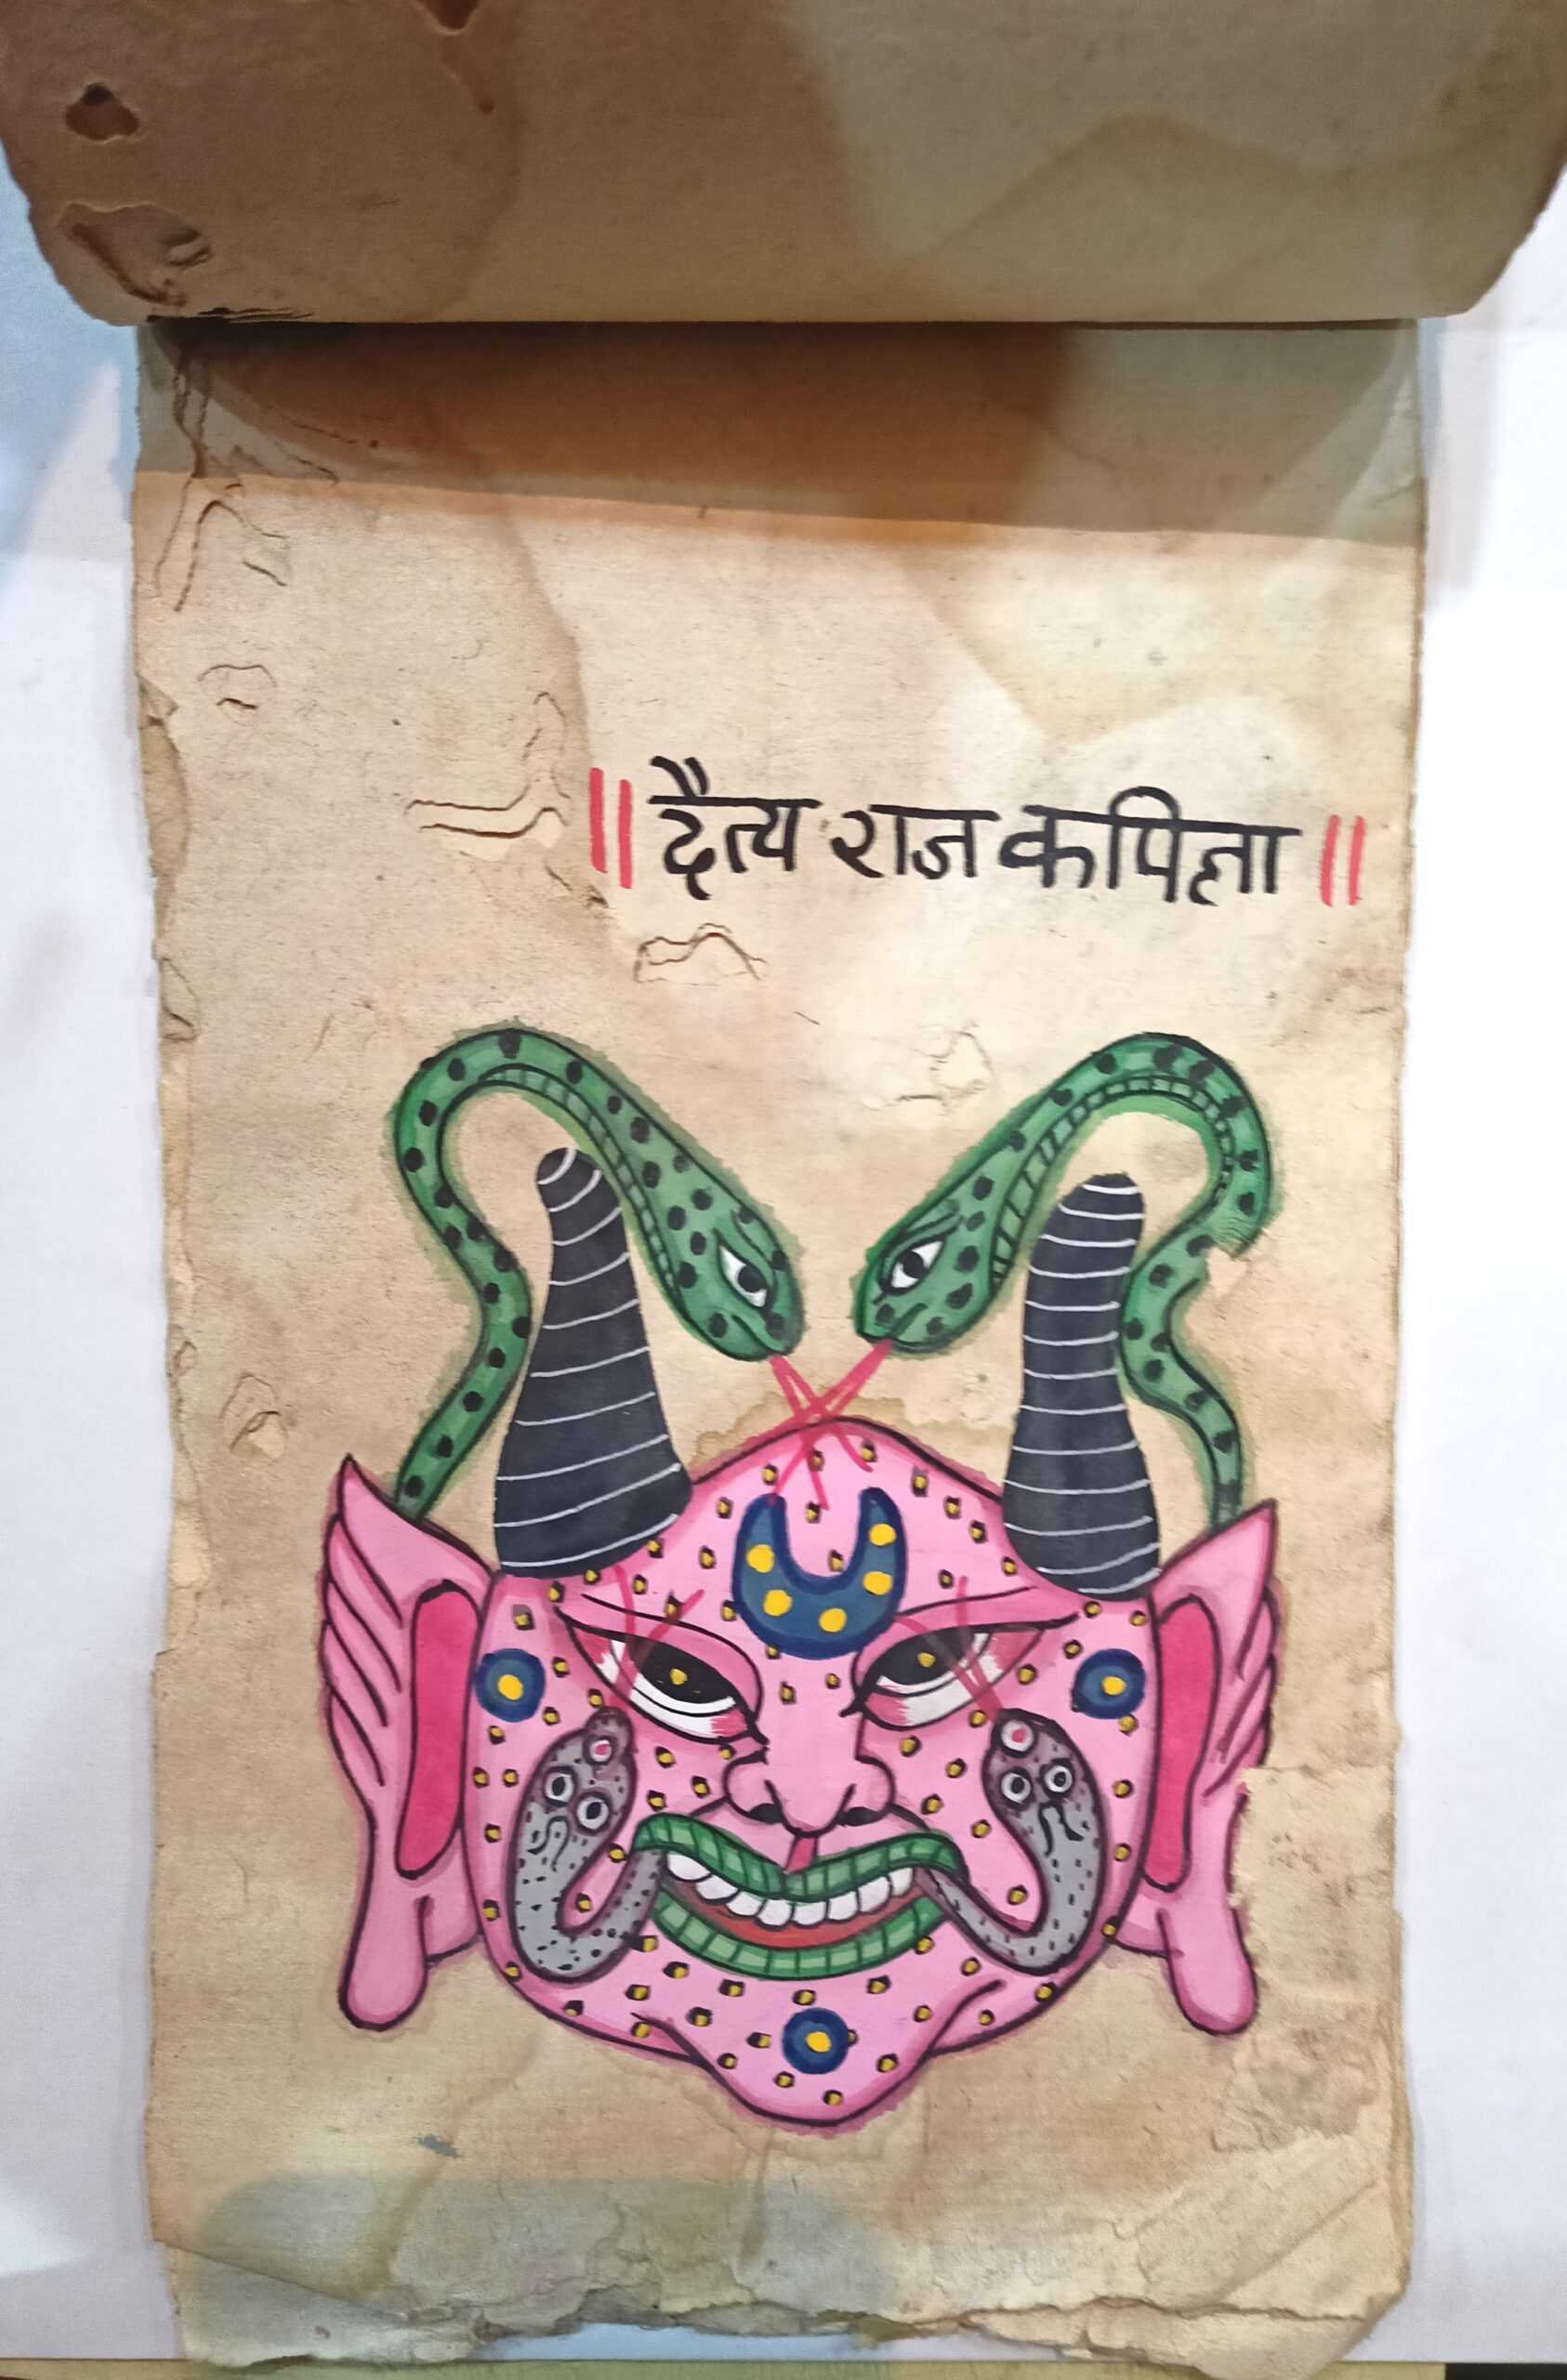 ॥ दैत्य राज कपिला ॥